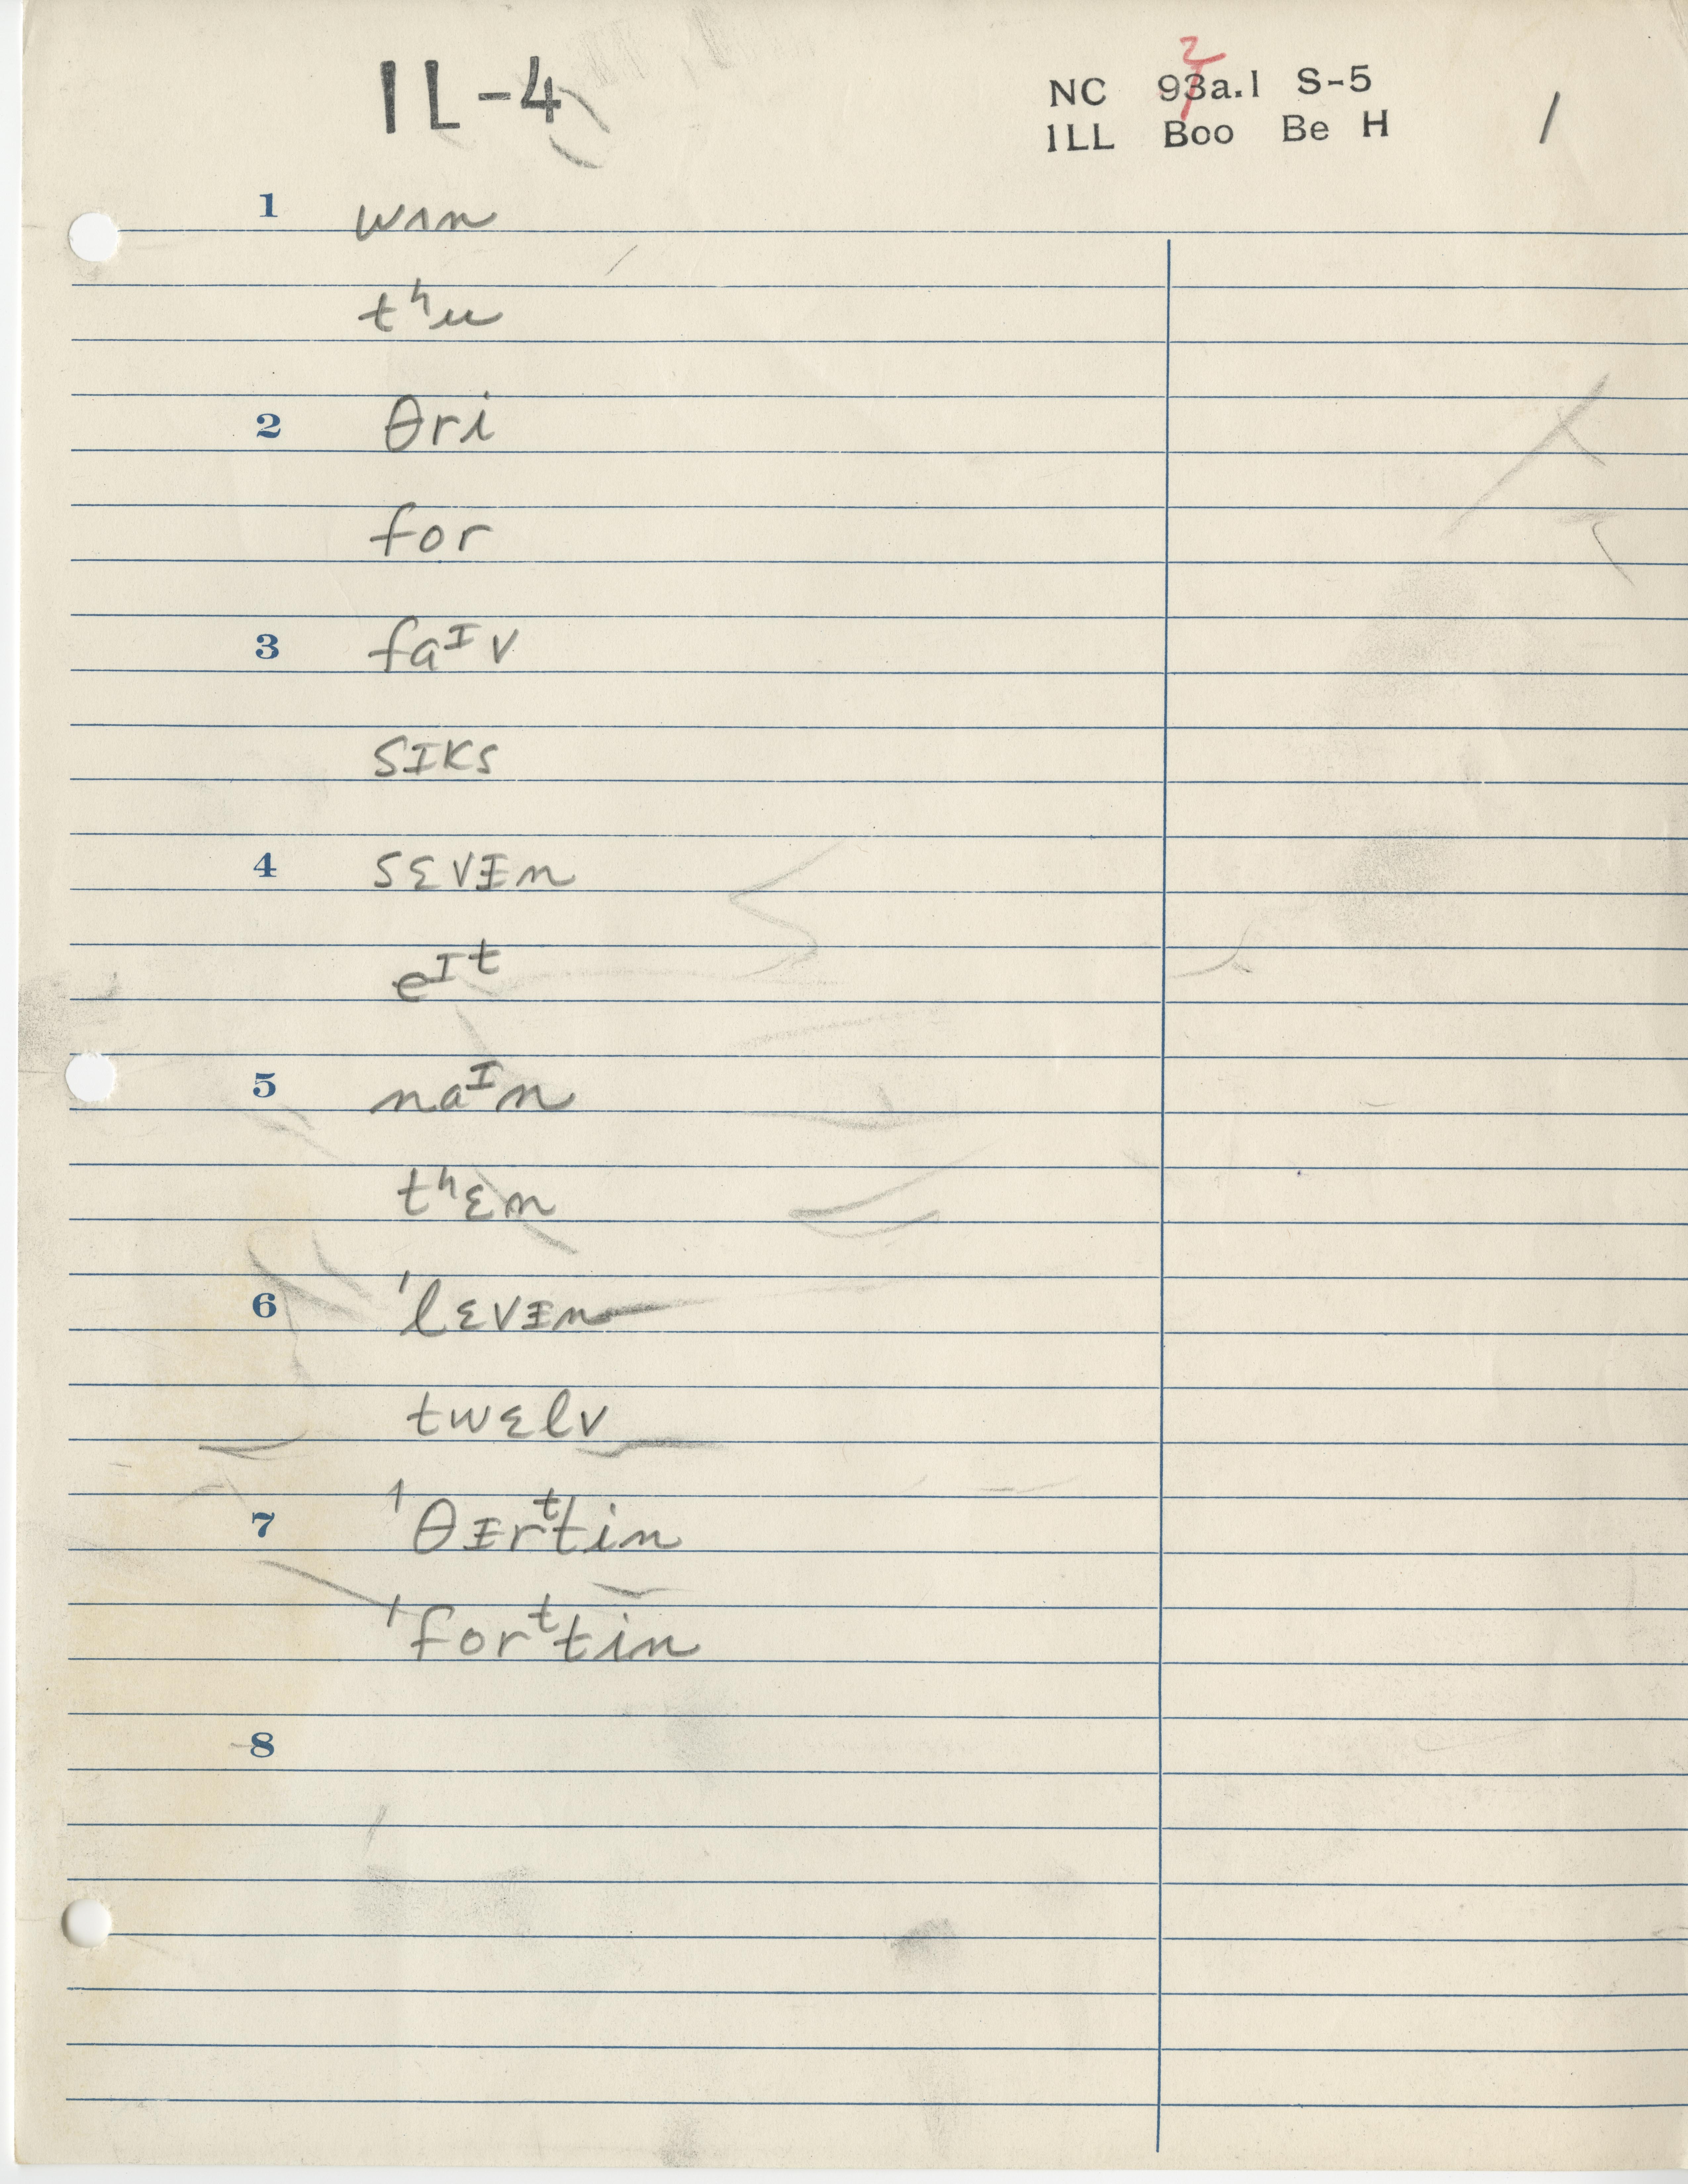 IL-4
NC 932a.1 S-5
ILL Boo Be H
1
1 wʌn
tʰu
2 θri
for
3 faᴵv
sɪks
4 sɛvᵻn
eᴵt
5 naᴵn
tʰɛn
6 ˈlɛvᵻn
twɛlv
7 ˈθᵻrᵗtin
ˈforᵗtin
8